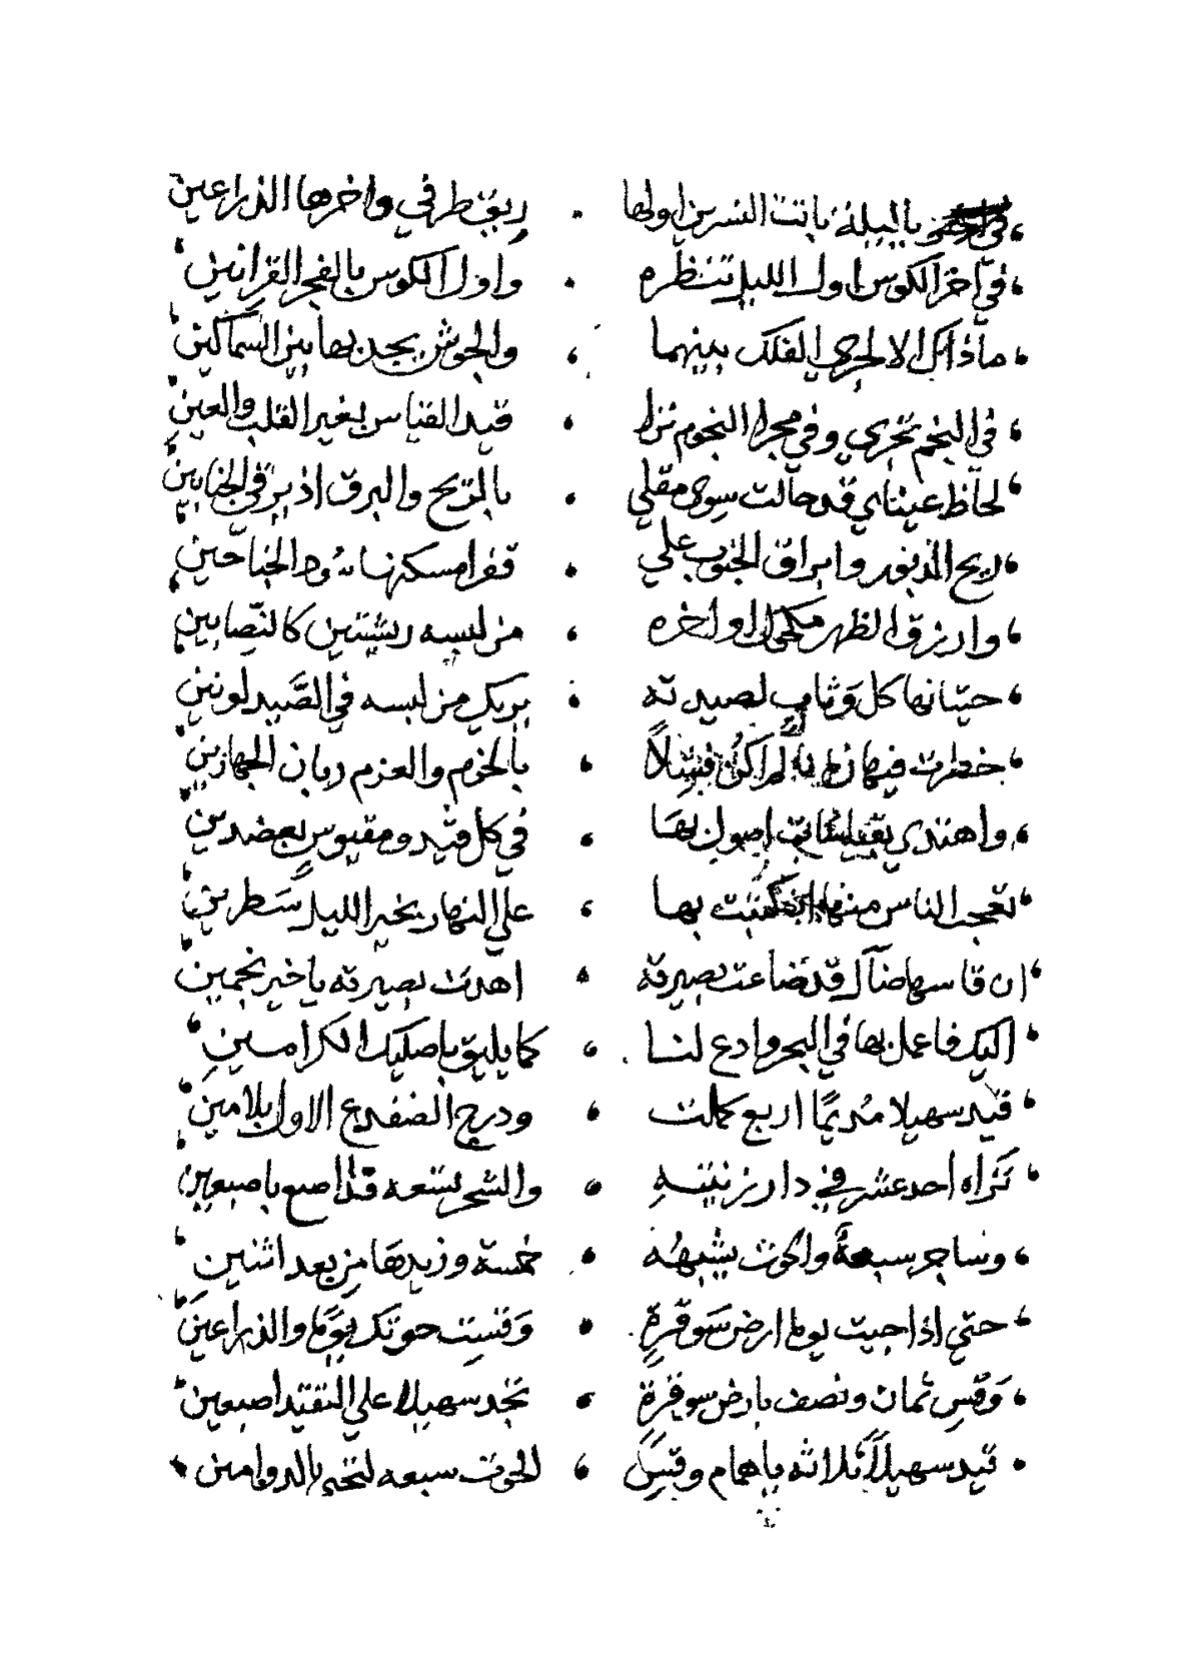 في يا ليلة باتت النسرين اولها ريق طرفي واخرها الذراعين
في اخر الكوس اول الليل تنظره واول الكوس بالفجر القرانين
ماذاك الا لجري الفلك بينهما والجوش يجذبها بين السماكين
في النجم تجري وفي مجرا النجوم ترا قيد القياس بغير القلب والعين
لحاظ عيناي قد حالت سوى مقلي بالريح والبرق اذ برق الجنابين
ريح الذبور وابراق الجنوب علي قفرا مسكنها سود الجناحين
وازرق الظهر مكحل اواخره من لبسه ريشتين كالنصابين
حيتانها كل وثاب لصيدته يريك من لبسه في الصيد لونين
خطرت فيها زماناً لم اكن فشلاً بالحزم والعزم ربان الجهازين
واهتدي بقياسات اصول بها في كل قيد ومقيوس بعضدين
تعجب الناس منها كتبت بها علي النهار بخير الليل سطرين
ان قاسها ضآل قد ضاعت بصيرته اهدت بصيرته ياخير نجمين
اليك فاعمل بها في البحر وادع لنا كما يليق باصليك الكرامين
قيد سهيلا مديمًا اربع كملت ودرج الضفدع الاول بلامين
تراه احد عشر في دار زيتنه والشحر تسعه قد اصبع باصبعين
وساجر سبعة والحوت يشبهه خمسة وزيدها من بعد اثنين
حتي اذا جيت يوما ارض سوقرة وقست حوتك يوما والذراعين
وقس ثمان ونصف بارض سوقرة تجد سهيلا علي التقيد اصبعين
قيد سهيلاً ثلاثه يا همام وقس الحوت سبعه بالدوامين